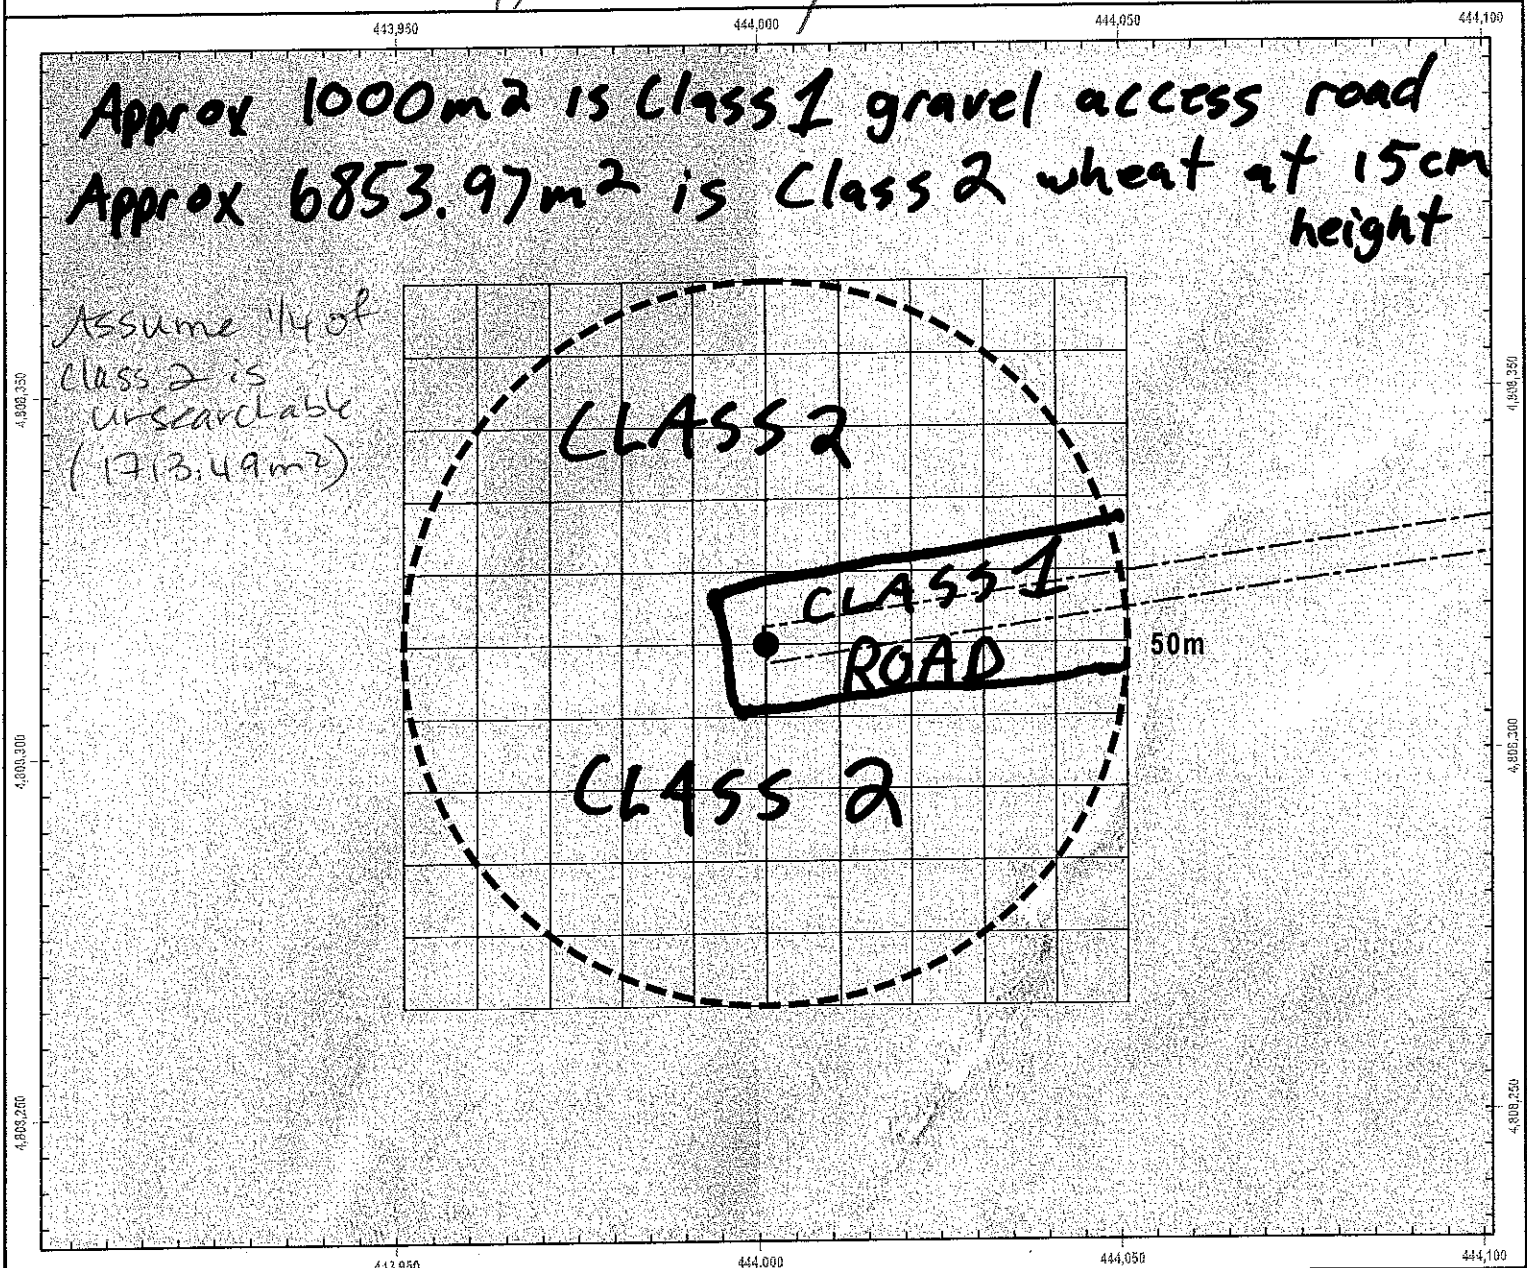 443,950 444,000 444,050 444,100
Approx 1000m2 is Class 1 gravel access road
Approx 6853.97m2 is Class 2 wheat at 15cm
height
Assume 1/4 of
class 2 is
unsearchable
(1713.49m2)
4,808,350
4,808,350
CLASS 2
CLASS 1
ROAD
50m
4,808,300
4,808,300
CLASS 2
4,808,250
4,808,250
443,950 444,000 444,050 444,100